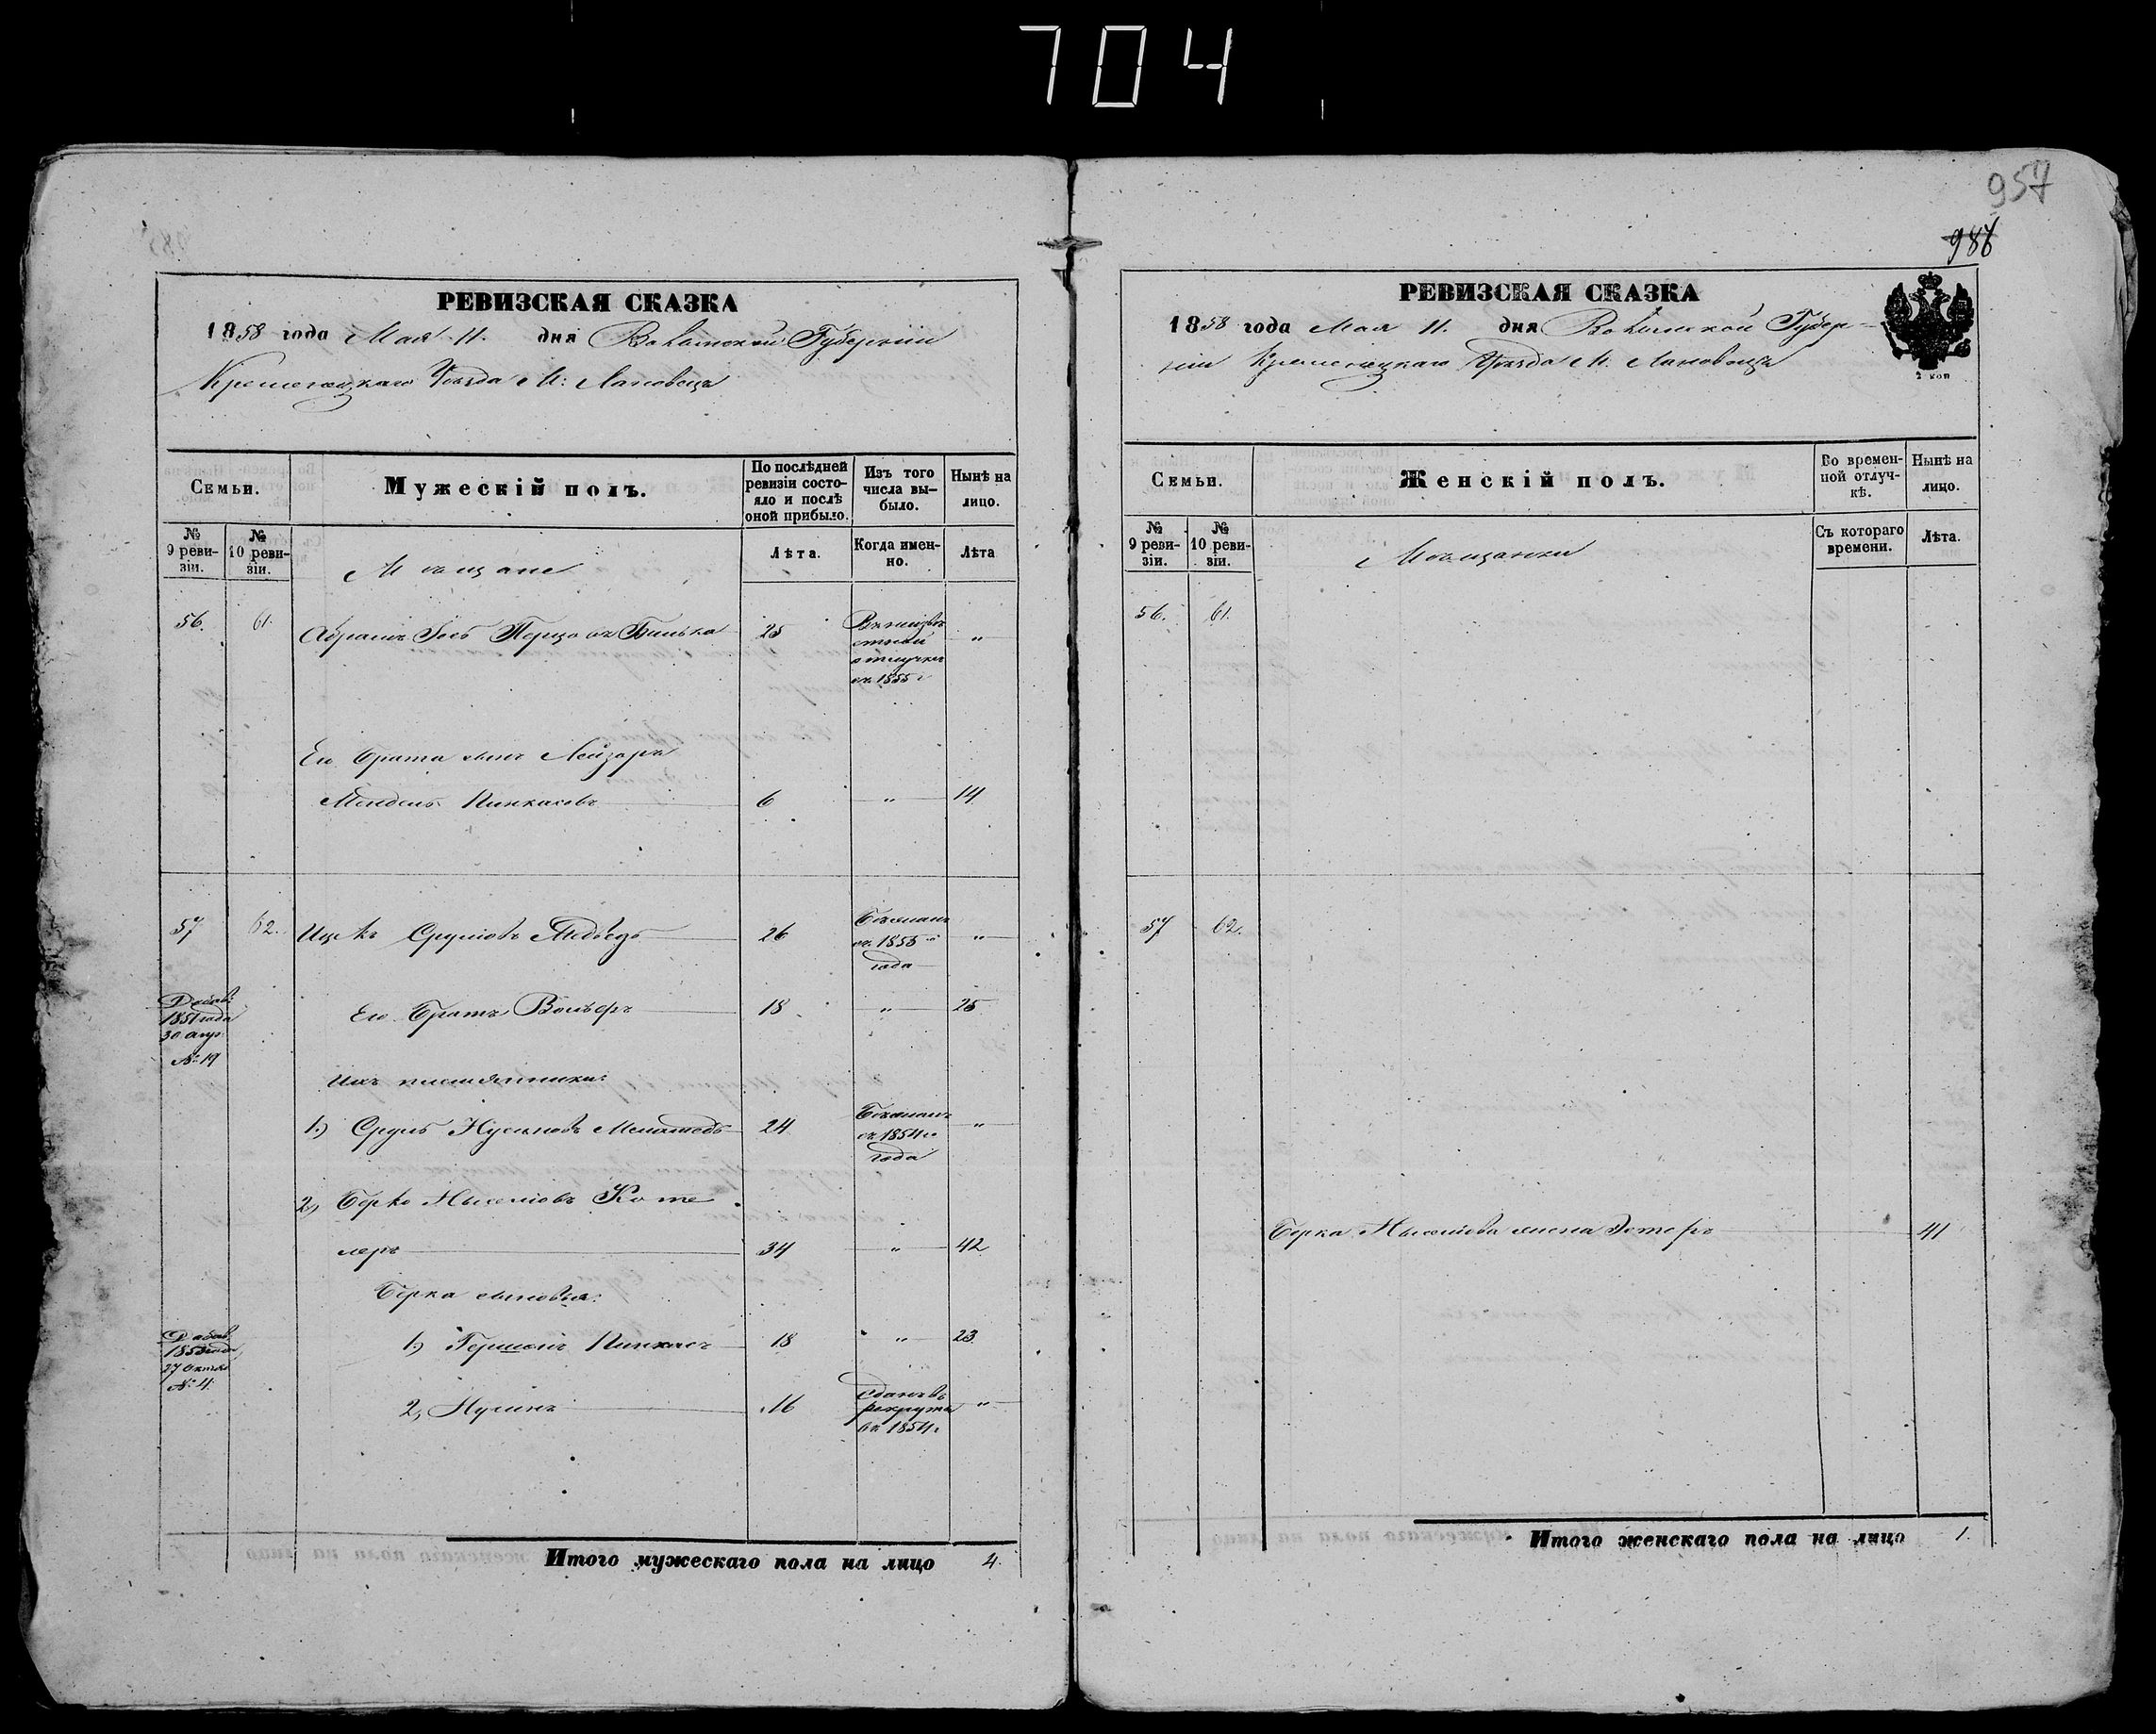 704
957
986
РЕВИЗСКАЯ СКАЗКА
1858 года Мая 11. дня Волынской Губерніи
Кременецкаго Уѣзда М: Лановецъ
Семьи.
Мужескій полъ.
По послѣдней ревизіи состояло и послѣ оной прибыло.
Изъ того числа выбыло.
Нынѣ на лицо.
№ 9 ревизіи.
№ 10 ревизіи.
Мѣщане
Лѣта.
Когда именно.
Лѣта
56. 61. Абрамъ Іось 25 Въ неизвѣстной отлучкѣ съ 1855 г "
Его брата сынъ Лейзоръ
Мендель Пинкасовъ 6 " 14
57 62. Ицекъ Сруліовъ Медведь 26 Бѣжалъ съ 1855 года "
Добав: 1851 года 30 апр. № 19
Его Братъ Вольфъ 18 " 25
Ихъ племянники:
1.) Сруль Нусимовъ 24 Бѣжалъ съ 1854 года "
2., Берко Мысліовъ Коте
леръ 34 " 42
Берка сыновья:
Добав. 1853 года 27 Октяб № 4.
1.) Гершонъ Пинкасъ 18 " 23
2, Нусинъ 16 сданъ въ рекруты въ 1854 г "
Итого мужескаго пола на лицо 4.
РЕВИЗСКАЯ СКАЗКА
1858 года Мая 11. дня Волынской Губер-
ніи Кременецкаго Уѣзда М. Лановецъ
2 коп
Семьи.
Женскій полъ.
Во временной отлучкѣ.
Нынѣ на лицо.
№ 9 ревизіи.
№ 10 ревизіи.
Мѣщанки
Съ котораго времени.
Лѣта.
56. 61.
57 62.
Берка Мысліова жена Эстеръ 41
Итого женскаго пола на лицо 1.